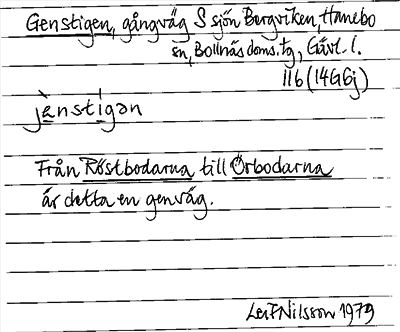 Genstigen, gångväg S sjön Bergviken, Hanebo
sn, Bollnäs doms. tg, Gävl. l.
11b (14G6j)
jènstigən
Från Röstbodarna till Örbodarna
är detta en genväg.
Leif Nilsson 1979